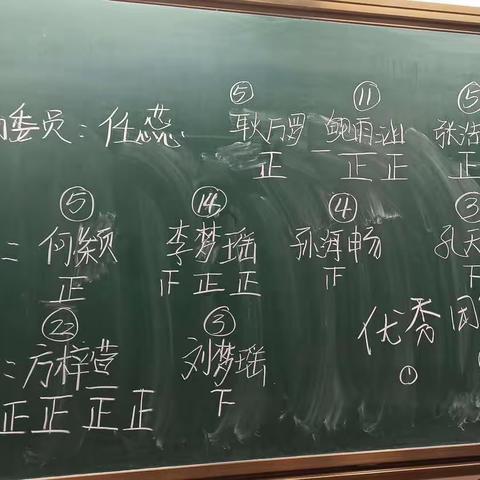 ⑤ ⑪ ⑤
委员：任蕊 耿万罗 鲍雨汕 张浩
正 一正正 正
⑤ ⑭ ④ ③
：何颖 李梦瑶 孙海畅 孔天
正 正正正 正 下
㉒ ③
：方梓萱 刘梦瑶 优秀团
正正正正 下 ①